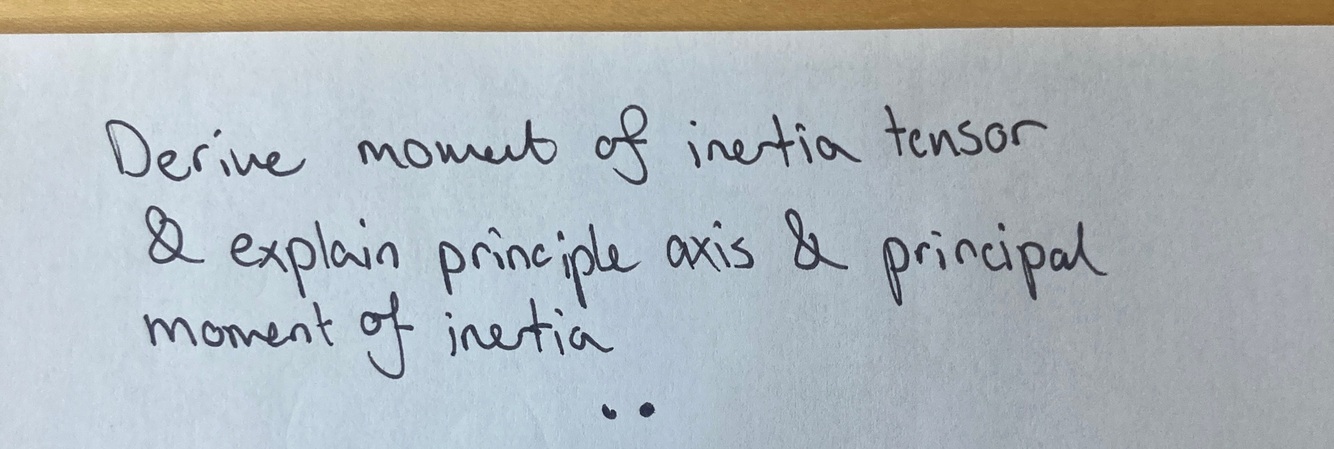 Derive moment of inertia tensor
& explain principle axis & principal
moment of inertia
..